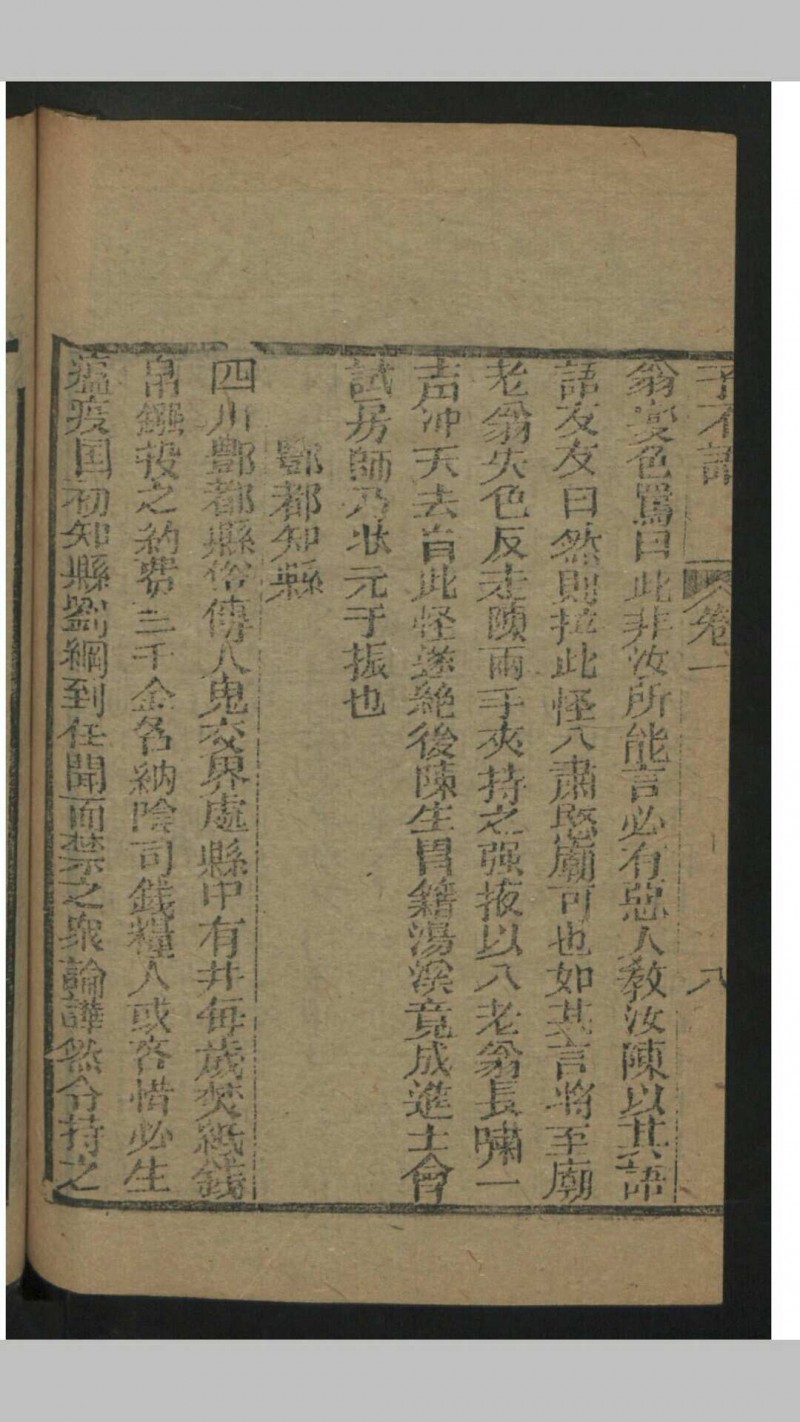 子不語 卷一 八
翁变色罵曰此非汝所能言必有惡人教汝陳以其語
語友友曰然則拉此怪入肅愍廟可也如其言將至廟
老翁失色反走陳兩手夾持之强掖以入老翁長嘯一
声冲天去自此怪遂絶後陳生冒籍湯溪竟成進士會
試房師乃狀元于振也
酆都知縣
四川酆都縣俗傳人鬼交界處縣中有井每歲焚紙錢
帛鏹投之納費三千金名納陰司錢糧人或吝惜必生
瘟疫国初知縣劉綱到任聞而禁之衆論譁然令持之